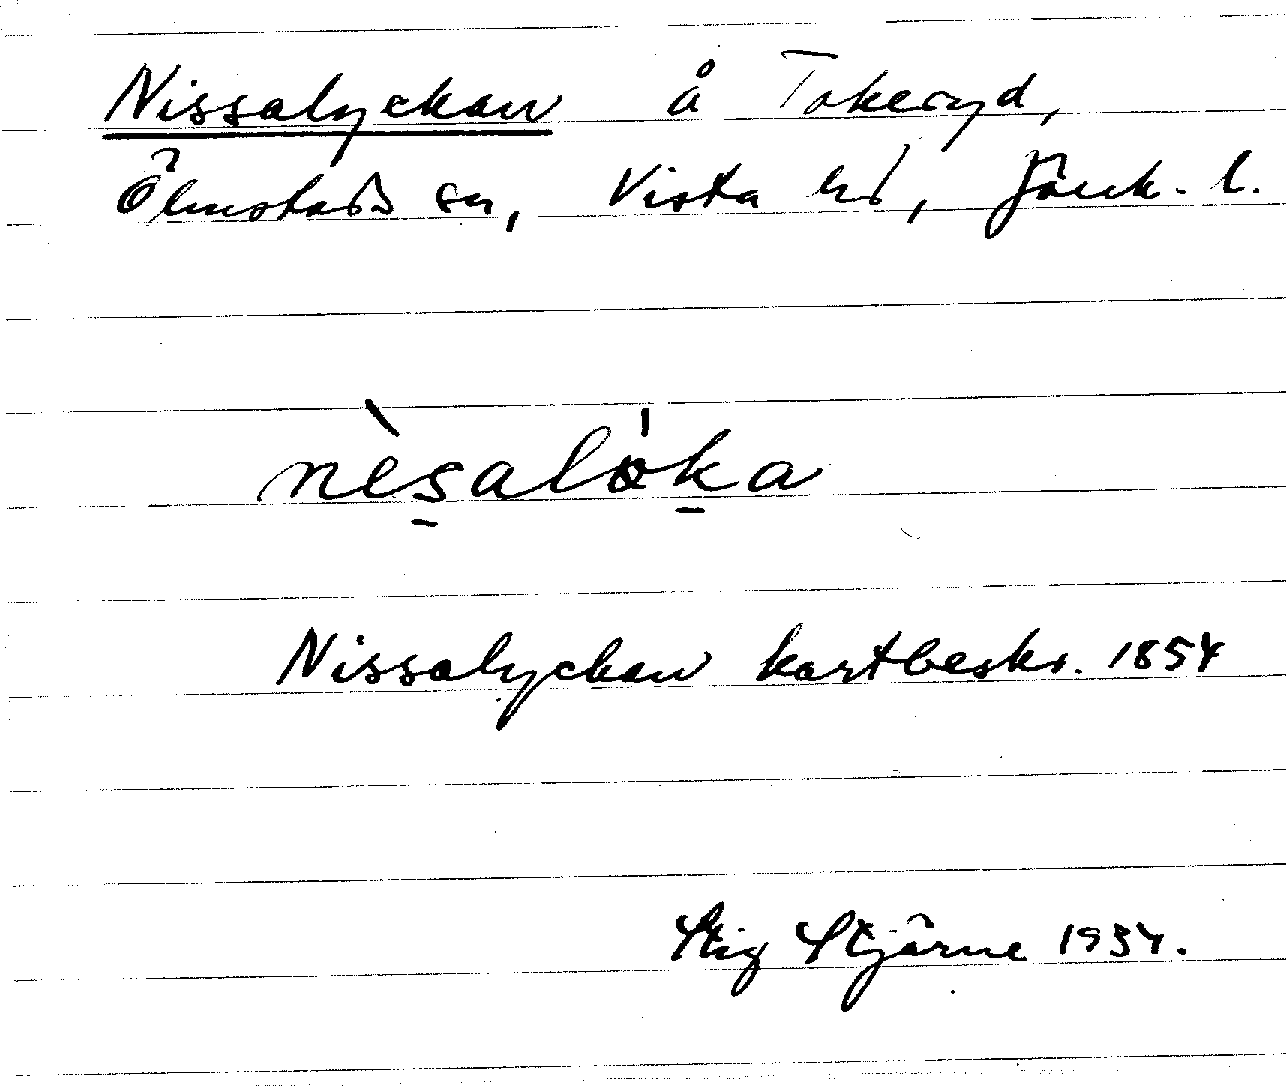 Nissalyckan å Tokeryd,
Ölmstads sn, Vista hd, Jönk. l.
nèsalöka
Nissalyckan kartbeskr. 1854
Stig Stjärne 1934.